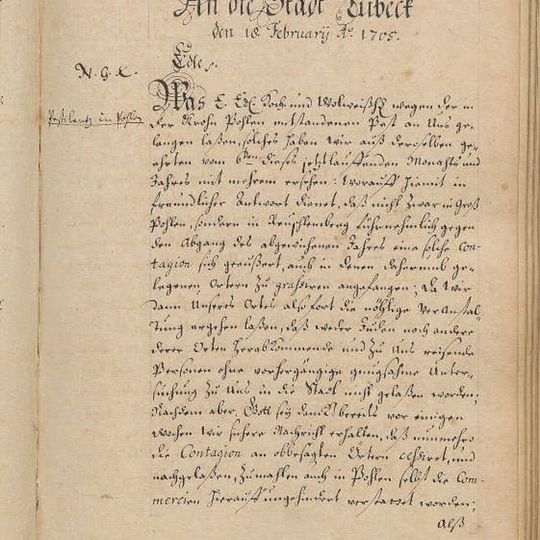 An die Stadt Lübeck
den 18. February Aº 1705.
Edle p.
N. G. E.
Pestilentz in Pohlen
Was E. Edl. Hoch und Wolweißhl. wegen der in
der Krohn Pohlen entstandenen Pest an Uns ge-
langen laßen, solches haben wir auß deroselben ge-
ehrten vom 6ten dieses jetztlauffenden Monahts und
Jahres mit mehrem ersehen: Worauff hiemit in
freundlicher Antwort dienet, daß nicht zwar in Groß
Pohlen, sondern in Reuschlemberg führnehmlich gegen
den Abgang des abgewichenen Jahres eine solche Con-
tagion sich geäußert, auch in denen daherumb ge-
legenen Örtern zu grahsiren angefangen; Da wir
dann Unseres Ortes alsofort die nöhtige Veranstal-
tung ergehen laßen, daß weder Juden noch andere
derer Orten herabkommende und zu Uns reisende
Personen ohne vorhergängige gnugsahme Unter-
suchung zu Uns in die Stadt nicht gelaßen worden;
Nachdem aber, Gott sey danck! bereits vor einigen
Wochen wir sichere Nachricht erhalten, daß nunmehro
die Contagion an obbesagten Örtern cessiret, und
nachgelaßen, zumahlen auch in Pohlen selbst die Com-
mercien hierauff ungehindert verstattet worden;
Alß